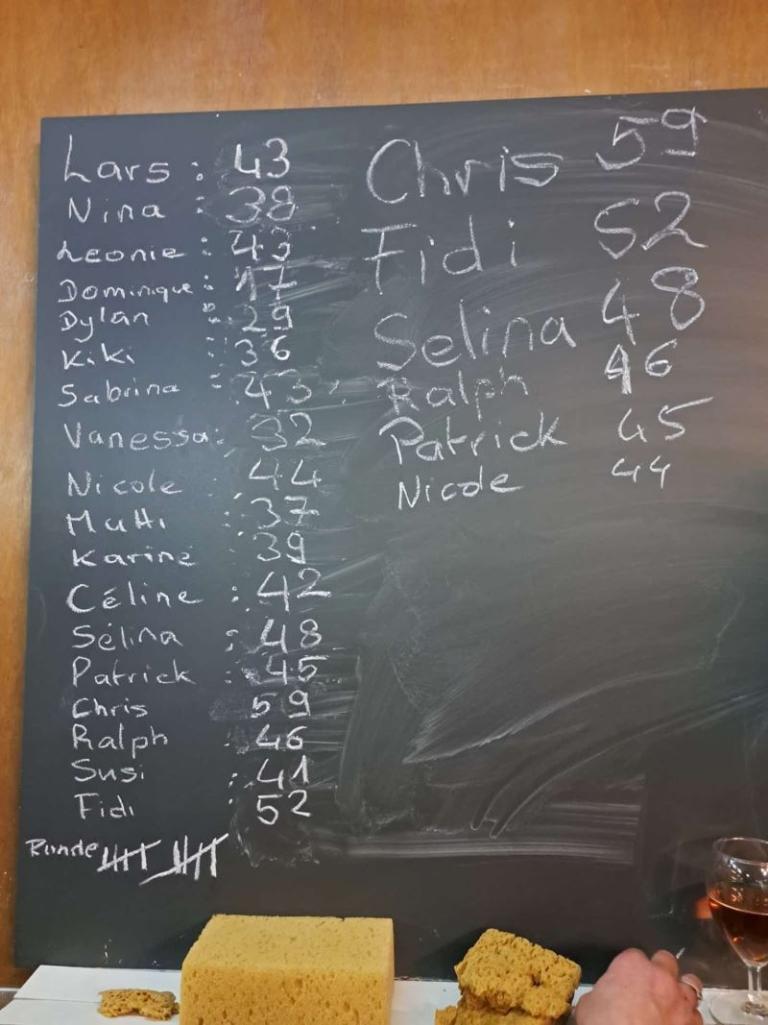 Lars : 43
Nina : 38
Leonie : 43
Dominique : 17
Dylan : 29
Kiki : 36
Sabrina : 43
Vanessa : 32
Nicole : 44
Matti : 37
Karine : 39
Céline : 42
Sélina : 48
Patrick : 45
Chris 59
Ralph : 46
Susi : 41
Fidi : 52
Runde
Chris 59
Fidi 52
Selina 48
Ralph 46
Patrick 45
Nicole 44